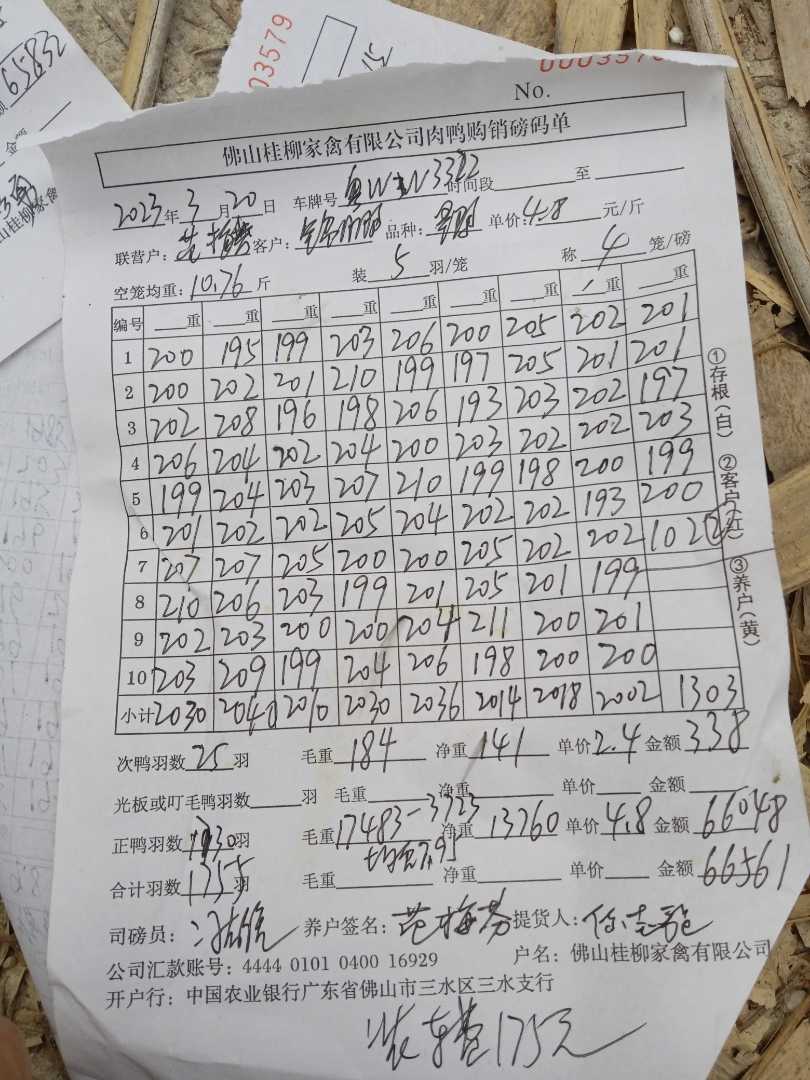 65832
额
金额
山桂柳家禽
0003579
15
000357
No.
佛山桂柳家禽有限公司肉鸭购销磅码单
2023年3月20日 车牌号 时间段 至
联营户: 客户: 品种: 单价:4.8 元/斤
空笼均重:10.76 斤 装 5 羽/笼 称 4 笼/磅
编号 重 重 重 重 重 重 重 重 重
1 200 195 199 203 206 200 205 202 201
2 200 202 201 210 199 197 205 201 201
3 202 208 196 198 206 193 203 202 197
4 206 204 202 204 200 203 202 202 203
5 199 204 203 207 210 199 198 200 199
6 201 202 202 205 204 202 202 193 200
7 207 207 205 200 200 205 202 202 102②
8 210 206 203 199 201 205 201 199
9 202 203 200 200 204 211 200 201
10 203 209 199 204 206 198 200 200
小计 2030 2040 2010 2030 2036 2014 2018 2002 1303
①存根(白) ②客户(红) ③养户(黄)
次鸭羽数 25 羽 毛重 184 净重 141 单价 2.4 金额 338
光板或叮毛鸭羽数 羽 毛重 净重 单价 金额
正鸭羽数 1730 羽 毛重 17483-3723 净重 13760 单价 4.8 金额 66048
均重7.95
合计羽数 1755 羽 毛重 净重 单价 金额 66561
司磅员: 养户签名:范梅芬 提货人:
公司汇款账号:4444 0101 0400 16929 户名:佛山桂柳家禽有限公司
开户行:中国农业银行广东省佛山市三水区三水支行
装车费175元